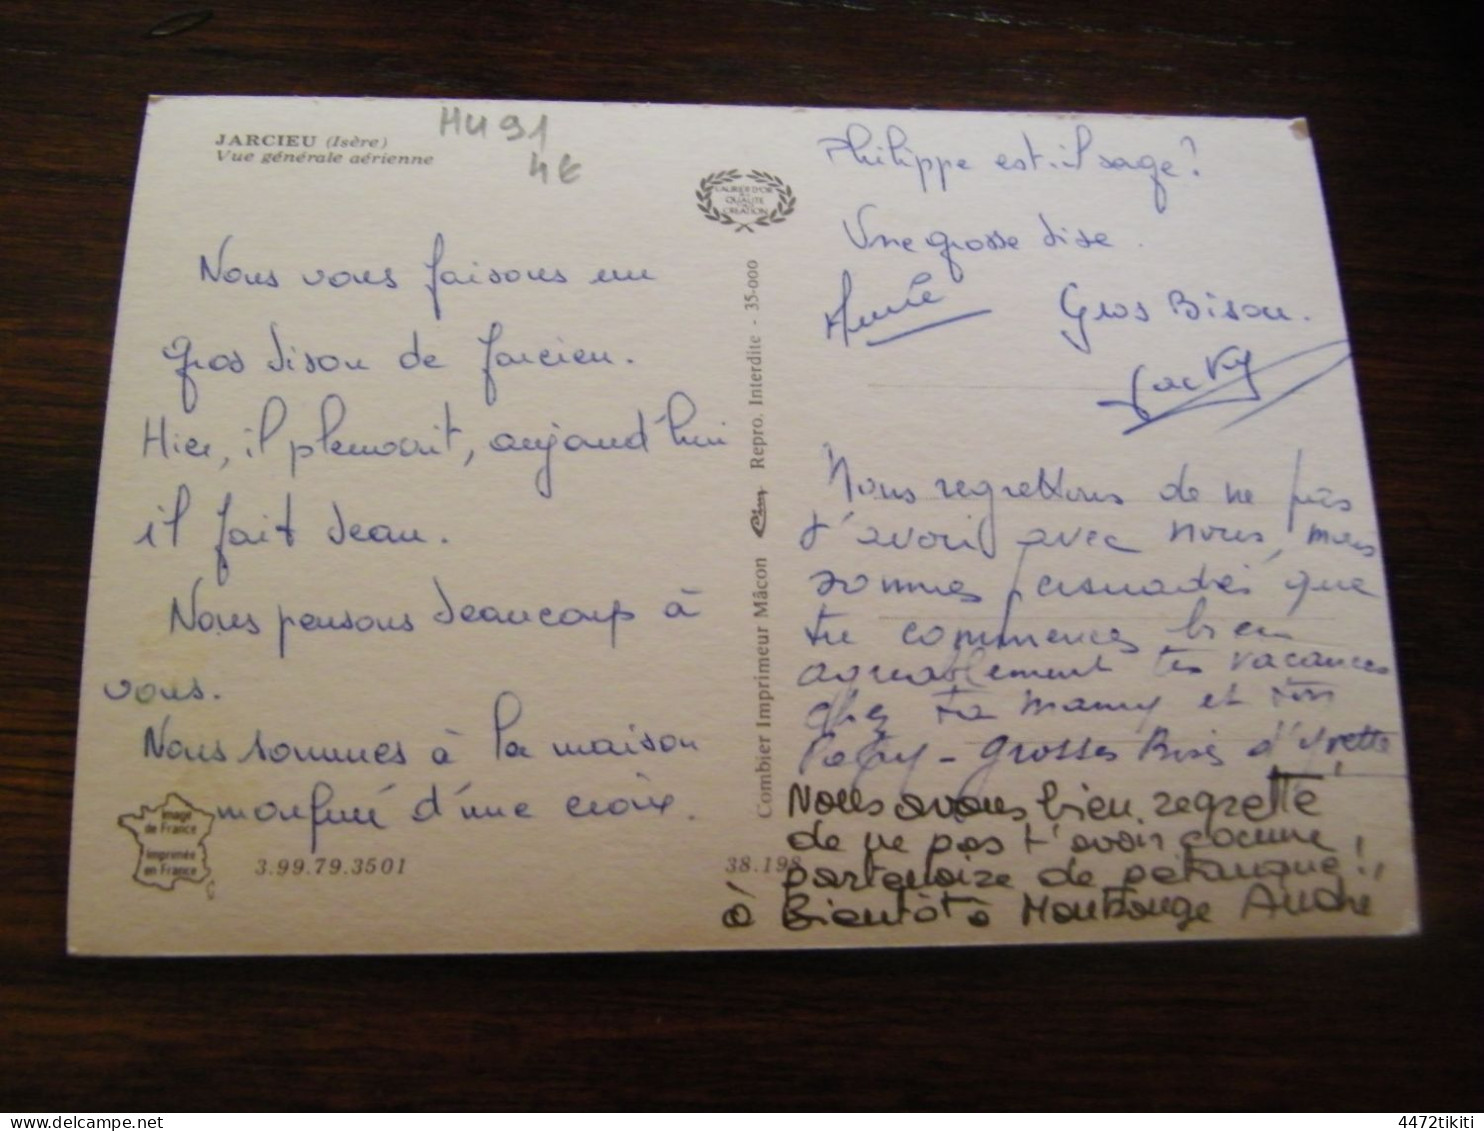 JARCIEU (Isère)
Vue générale aérienne
HU 91
4€
LAURIER D'OR
QUALITE
CREATION
Nous vous faisons un
gros bisou de Jarcieu.
Hier, il pleuvait, aujourd'hui
il fait beau.
Nous pensons beaucoup à
vous.
Nous sommes à la maison
d'une croix.
image
de France
imprimée
en France
3.99.79.3501
38.198
Combier Imprimeur Mâcon Cim Repro. Interdite - 35-000
Philippe est-il sage?
Une grosse bise.
Gros Bisou.
Jacky
Nous regrettons de ne pas
t'avoir avec nous, mais
sommes persuadés que
tu commences bien
agréablement tes vacances
chez ta mamy et ton
Papy - Grosses Bises d'Yvette
Nous avons bien regretté
de ne pas t'avoir comme
partenaire de pétanque!,
à Bientôt à Montrouge André
4472tikiti
delcampe.net